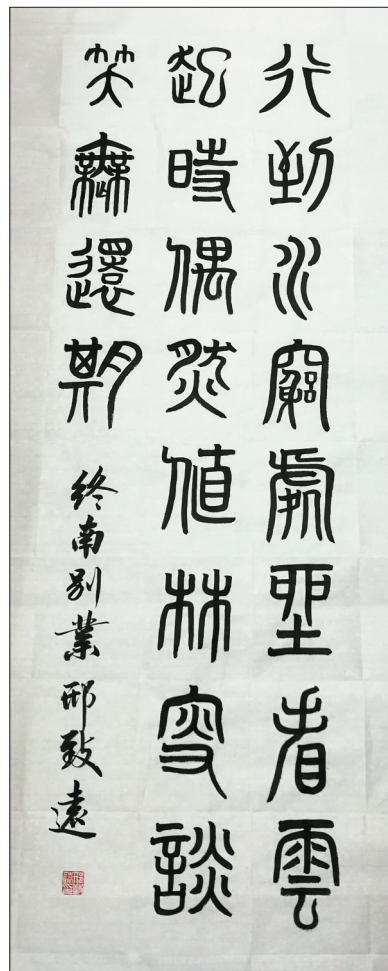 行到水窮處坐看雲
起時偶然值林叟談
笑無還期
終南別業 邢致遠